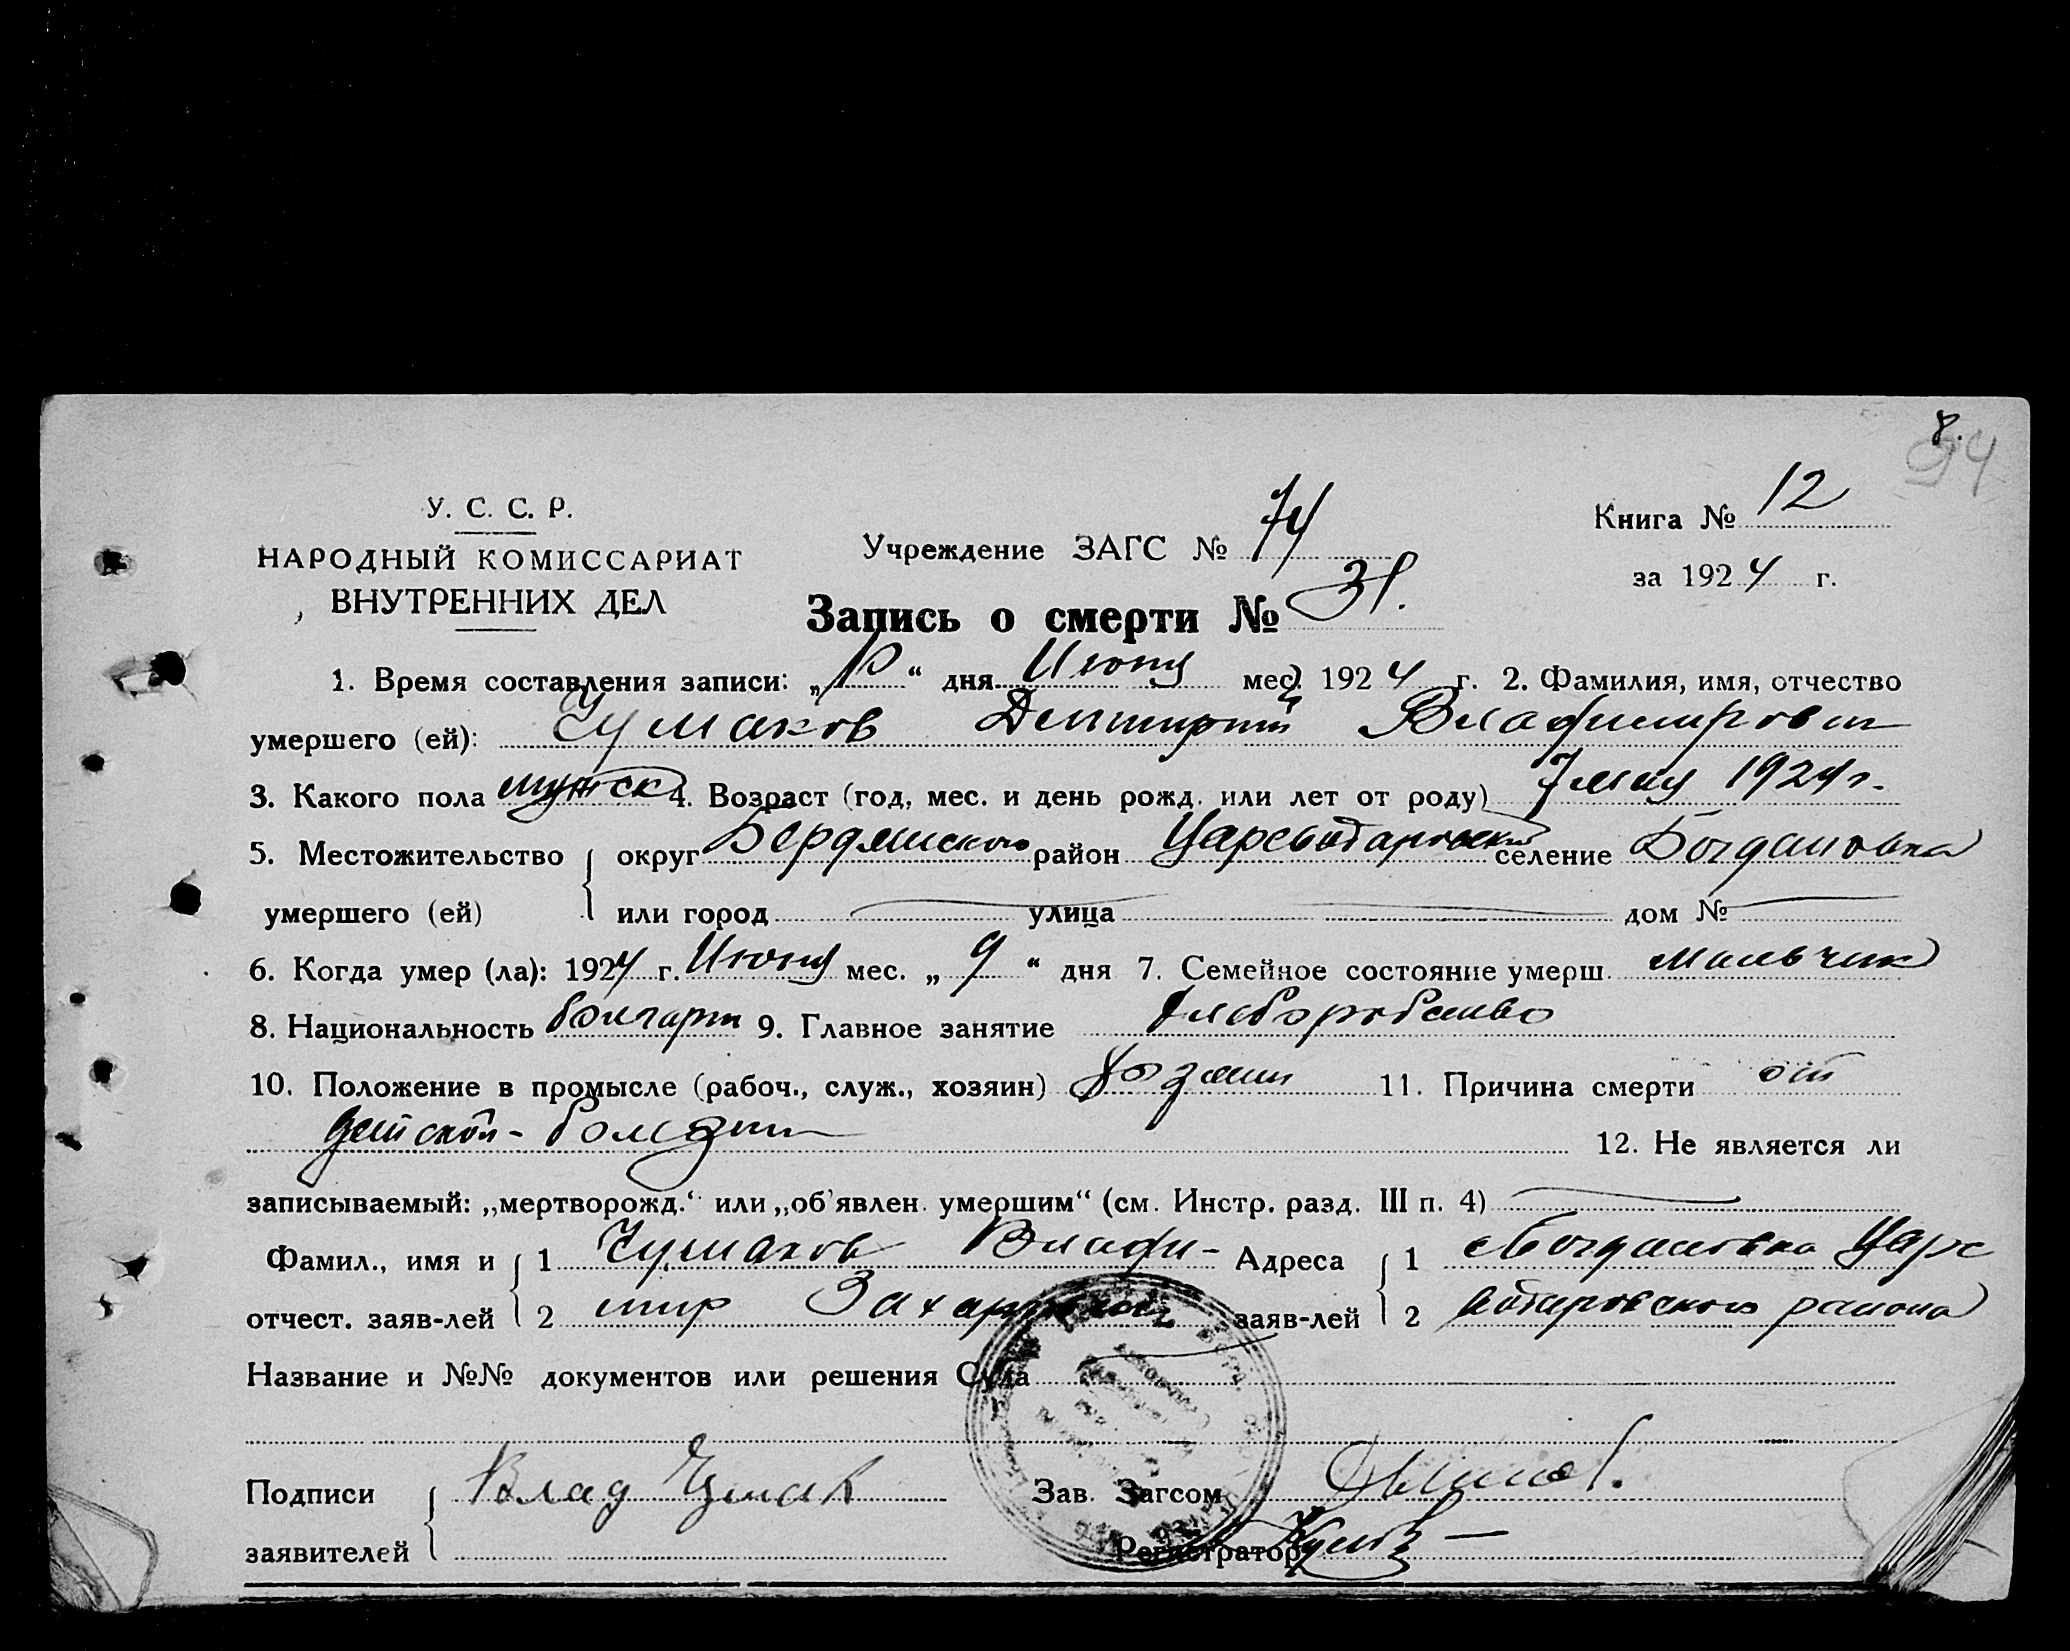 8.
94
У. С. С. Р.
НАРОДНЫЙ КОМИССАРИАТ
ВНУТРЕННИХ ДЕЛ
Учреждение ЗАГС № 74
Книга № 12
за 1924 г.
Запись о смерти № 31.
1. Время составления записи: „10“ дня Июня мес. 1924 г. 2. Фамилия, имя, отчество
умершего (ей): Чумаков Дмитирий Владимирович
3. Какого пола мужск 4. Возраст (год, мес. и день рожд. или лет от роду) 7 мая 1924 г.
5. Местожительство округ Бердянского район Цареводаровский селение Богдановка
умершего (ей) или город улица дом №
6. Когда умер (ла): 1924 г. Июня мес. „9“ дня 7. Семейное состояние умерш. мальчик
8. Национальность болгарин 9. Главное занятие хлеборобство
10. Положение в промысле (рабоч., служ., хозяин) хозяин 11. Причина смерти от
детской - болезни 12. Не является ли
записываемый: „мертворожд.“ или „об'явлен. умершим“ (см. Инстр. разд. III п. 4)
Фамил., имя и 1 Чумаков Влади- Адреса 1 Богдановка Царе
отчест. заяв-лей 2 мир Захарович заяв-лей 2 района
Название и №№ документов или решения Суда
Подписи Влад Чумак Зав. Загсом
заявителей Регистратор